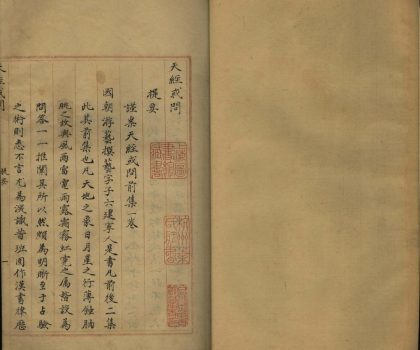 天經或問
提要
謹案天經或問前集一卷
國朝游藝撰藝字子六建寧人是書凡前後二集
此其前集也凡天地之象日月星之行薄蝕朒
朓之故與風雨雷電雨露霜霧虹霓之屬皆設為
問答一一推闡其所以然頗為明晰至于占驗
之術則悉不言尤為深識昔班固作漢書律歷
天經或問
提要